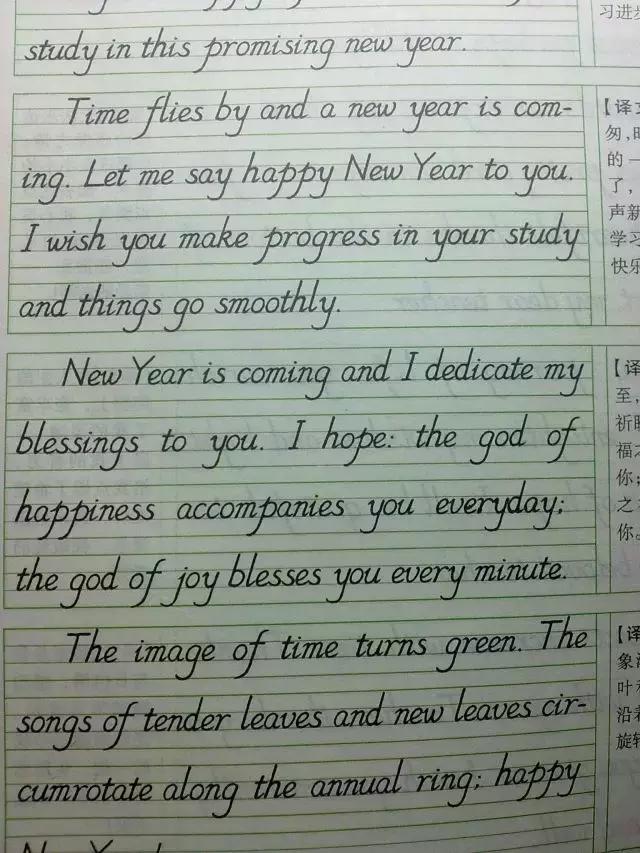 study in this promising new year.
Time flies by and a new year is com-
ing. Let me say happy New Year to you.
I wish you make progress in your study
and things go smoothly.
New Year is coming and I dedicate my
blessings to you. I hope: the god of
happiness accompanies you everyday;
the god of joy blesses you every minute.
The image of time turns green. The
songs of tender leaves and new leaves cir-
cumrotate along the annual ring; happy
New Year!
习进步
【译文
匆,时
的一
了,
声新
学习
快乐
【译
至,
祈盼
福之
你;
之
你。
【译
象
叶和
沿着
旋转